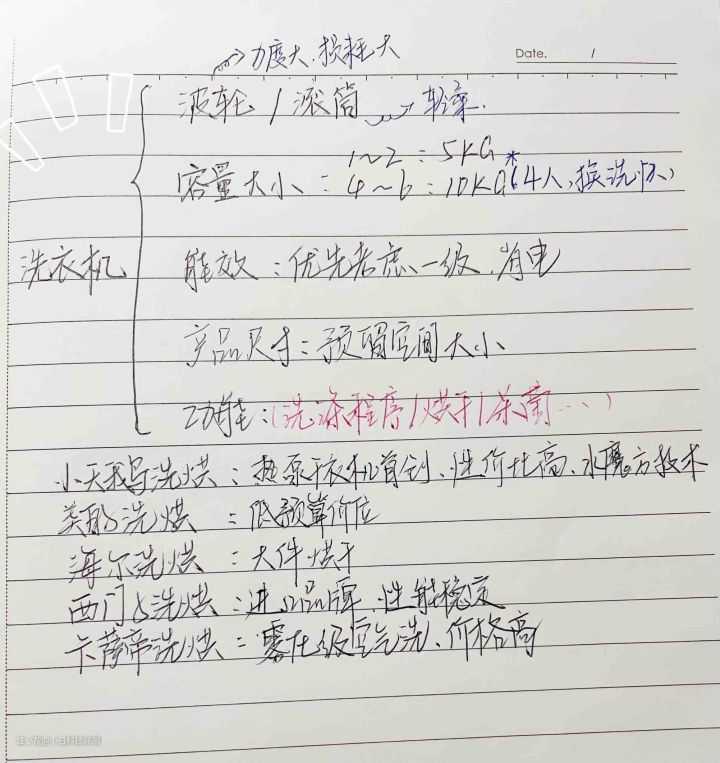 力度大、损耗大
Date. /
波轮 / 滚筒 轻柔.
1~2 : 5KG
容量大小 : 4~6 : 10KG*(4人、换洗快)
洗衣机
能效 : 优先考虑一级、省电
产品尺寸 : 预留空间大小
功能 : (洗涤程序/烘干/杀菌...)
小天鹅洗烘 : 热泵干衣机首创、性价比高、水魔方技术
美的洗烘 : 低预算价位
海尔洗烘 : 大件烘干
西门子洗烘 : 进口品牌、性能稳定
卡萨帝洗烘 : 雾化级空气洗、价格高
住小帮@小白科技评测